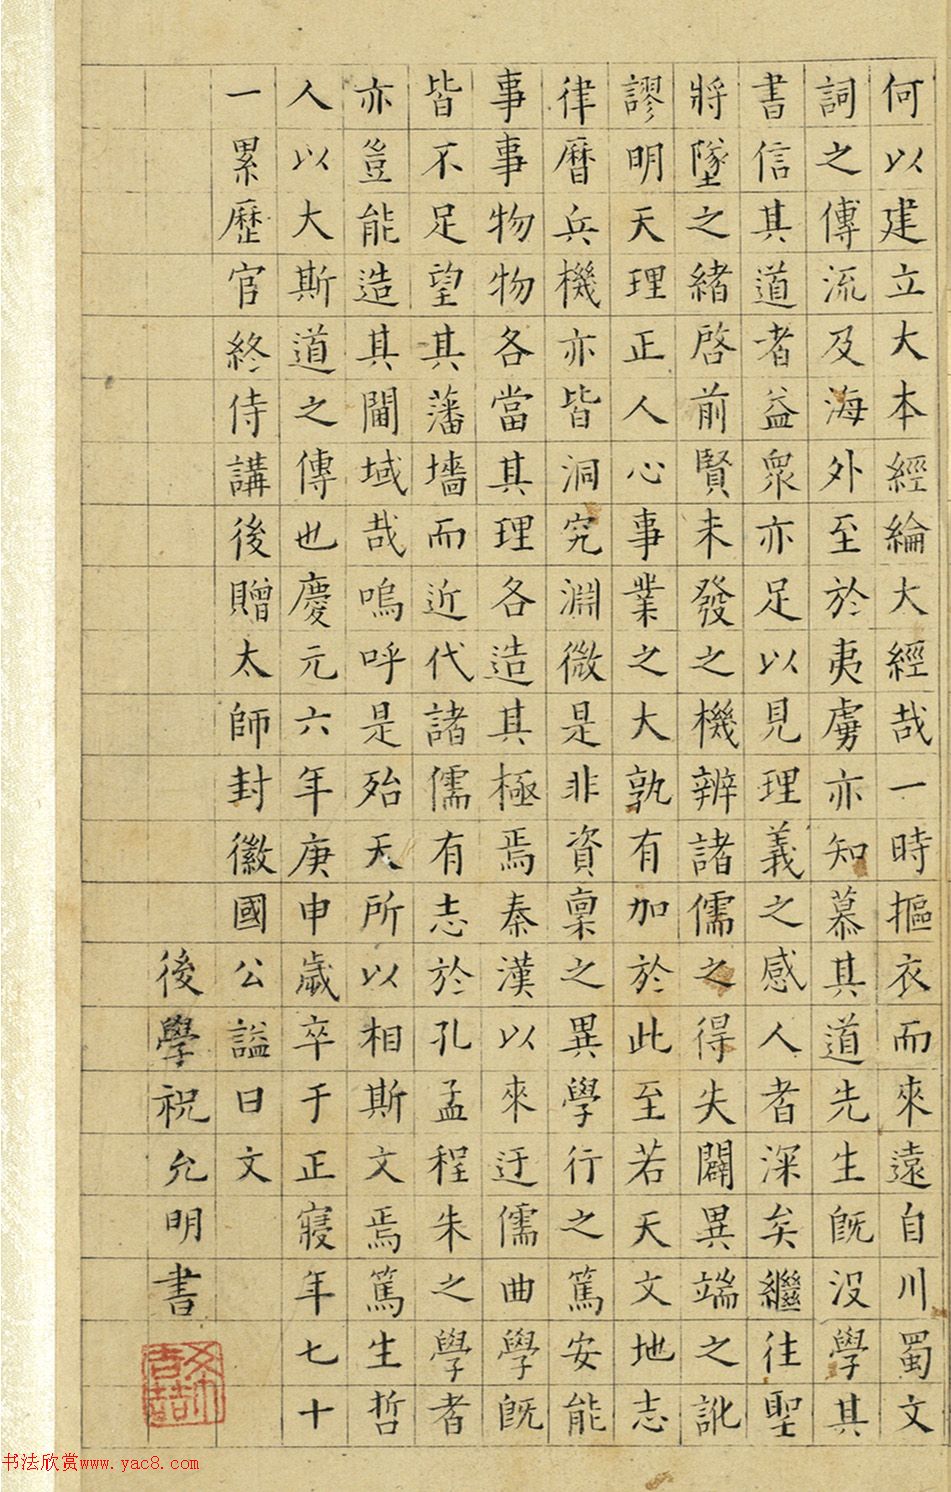 何以建立大本經綸大經哉一時摳衣而來遠自川蜀文
詞之傳流及海外至於夷虜亦知慕其道先生旣没學其
書信其道者益衆亦足以見理義之感人者深矣繼往聖
將墜之緒啓前賢未發之機辨諸儒之得失闢異端之訛
謬明天理正人心事業之大孰有加於此至若天文地志
律曆兵機亦皆洞究淵微是非資稟之異學行之篤安能
事事物物各當其理各造其極焉秦漢以來迂儒曲學旣
皆不足望其藩墻而近代諸儒有志於孔孟程朱之學者
亦豈能造其閫域哉嗚呼是殆天所以相斯文焉篤生哲
人以大斯道之傳也慶元六年庚申歲卒于正寢年七十
一累歷官終侍講後贈太師封徽國公謚曰文
後學祝允明書
书法欣赏www.yac8.com